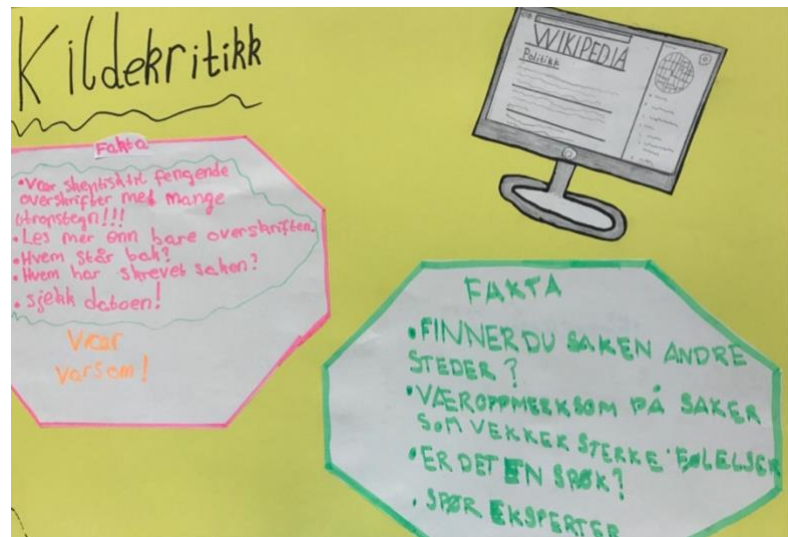 Kildekritikk
Fakta
•Vær skeptisk til fengende
overskrifter med mange
utropstegn!!!
•Les mer enn bare overskriften.
•Hvem står bak?
•Hvem har skrevet saken?
• sjekk datoen!
Vær
varsom!
WIKIPEDIA
Politikk
FAKTA
•FINNER DU SAKEN ANDRE
STEDER?
•VÆR OPPMERKSOM PÅ SAKER
SOM VEKKER STERKE FØLELSER
•ER DET EN SPØK?
. SPØR EKSPERTER